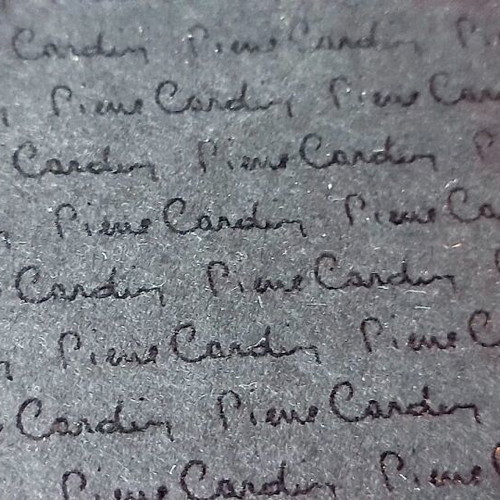 Cardin Pierre Cardin P
Pierre Cardin Pierre Car
Cardin Pierre Cardin P
Pierre Cardin Pierre Ca
Cardin Pierre Cardin
Pierre Cardin Pierre C
Cardin Pierre Cardin
Pierre Cardin Pierre